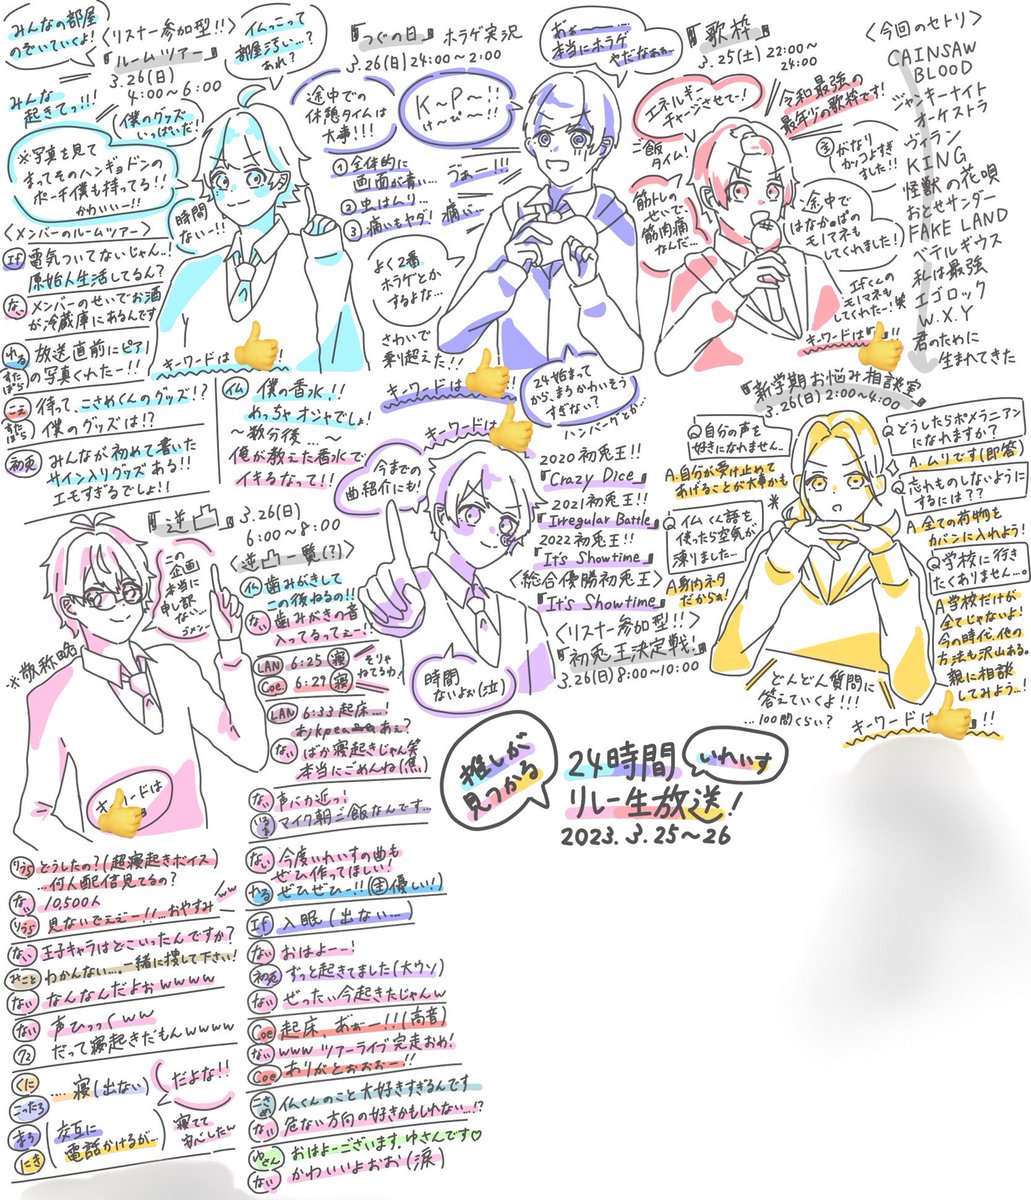 みんなの部屋
のぞいていくよ!
みんな
起きてっ!!!
<リスナー参加型!!>
『ルームツアー』
3.26(日)
4:00〜6:00
イムこって
部屋汚い…?
あれ?
僕のグッズ
いっぱいだ!
※写真を見て
すってそのハンギョドンの
ポーチ僕も持ってる!!
かわいいー!!
時間
ないー!!
<メンバーのルームツアー>
If 電気ついてないじゃん…!
原始人生活してるん?
ない メンバーのせいでお酒
が冷蔵庫にあるんです
れる 放送直前にピアノ
の写真くれたー!!
すたぽら
こえ 待って、こさめくんのグッズ!?
すたぽら 僕のグッズは!?
初兎 みんなが初めて書いた
サイン入りグッズある!!
エモすぎるでしょ!!
キーワードは
!
イム 僕の香水!!
めっちゃオシャでしょ!
〜数分後…〜
俺が教えた香水で
イキるなって!!
『つぐの日』ホラゲ実況
3.26(日)24:00〜2:00
途中での
休憩タイムは
大事!!!
K〜P〜!!
け〜ぴ〜!!
あぁーー!
本当にホラゲ
やだなぁぁ…
①全体的に
画面が青い…
②虫はムリ…
③痛いもヤダ!
うぁー!!!
痛い…
よく2番
ホラゲとか
するよな…
さわいで
乗り超えた!!
キーワードは
!!
24始まって
から、まろかわいそう
すぎない?
ハンバーグとか…
『歌枠』
3.25(土)22:00〜
24:00
エネルギー
チャージさせてー!
ご飯
タイム!
令和最強の
最年少の歌枠です!
がなり
かっこよすぎ
ました!!
筋トレの
せいで
筋肉痛
なんだ…
〜途中で
はなかっぱの
モノマネも
してくれました!
Ifくんの
モノマネも
してくれたー!笑
キーワードは
!!
<今回のセトリ>
CAINSAW
BLOOD
ジャンキーナイト
オーケストラ
ヴィラン
KING
怪獣の花唄
おとせサンダー
FAKE LAND
ベテルギウス
私は最強
エゴロック
W.X.Y
君のために
生まれてきた
『新学期お悩み相談室』
3.26(日)2:00〜4:00
Q自分の声を
好きになれません…
A.自分が受け止めて
あげることが大事かも
Q イムくん語を
使ったら空気が
凍りました…
A身内ネタ
だからぁ!
Qどうしたらポメラニアン
になれますか?
A.ムリです(即答)
Q忘れものしないように
するには??
A 全ての荷物を
カバンに入れよう!
Q学校に行き
たくありません…。
A学校だけが
全てじゃないよ!
今の時代、他の
方法も沢山ある。
親に相談
してみよう…!
どんどん質問に
答えていくよ!!!
…100問くらい?
キーワードは
!!
キーワードは
今までの
曲紹介にも!
時間
ないよぉ(泣)
2020 初兎王!
『Crazy Dice』
2021 初兎王!
『Irregular Battle』
2022 初兎王!
『It's Showtime』
<総合優勝初兎王>
『It's Showtime』
<リスナー参加型!!>
『初兎王決定戦!』
3.26(日)8:00〜10:00
『逆凸』
3.26(日)
6:00〜8:00
この
企画
本当に
申し訳
ない…
ラメンー
※敬称略
キーワードは
<逆凸一覧(?)>
仏 歯みがきして
この後ねるの!!
ない 歯みがきの音
入ってるってぇー!!
LAN 6:25 寝
Coe. 6:29 寝
そりゃ
ねてるわ!
LAN 6:33 起床…!
ない ばか寝起きじゃん笑
本当にごめんね(焦)
ない 声バカ近っ!
マイク朝ご飯なんです…
ない 今度いれいすの曲も
ぜひ作ってほしい!
れる ぜひぜひー!!(主優しい!)
If 入眠(出ない…)
ない おはよー…!
初兎 ずっと起きてました(大ウソ)
ない ぜったい今起きたじゃんw
Coe 起床 あぁー!!!(高音)
ない www ツアーライブ完走おめ!
Coe ありがとおぉおー!!
こさめ 仏くんのこと大好きすぎるんです
ない 危ない方向の好きかもしれない…!?
ゆさん おはよーございます、ゆさんです♡
ない かわいいよおお(涙)
りうら どうしたの?(超寝起きボイス)
…何人配信見てるの?
ない 10,500人
りうら 見ないでぇえー!!…おやすみ
ww
ない 王子キャラはどこいったんですか?
みこと わかんない…。一緒に捜して下さい!
ない なんなんだよぉwwww
ない 声ひっっくww
72 だって寝起きだもんwwww
くに
こったろ
…寝(出ない)
だよな!!
まろ
にき
交互に
電話かけるが…
寝てて
推しが
見つかる
24時間
リレー生放送!
いれいす
2023.3.25〜26